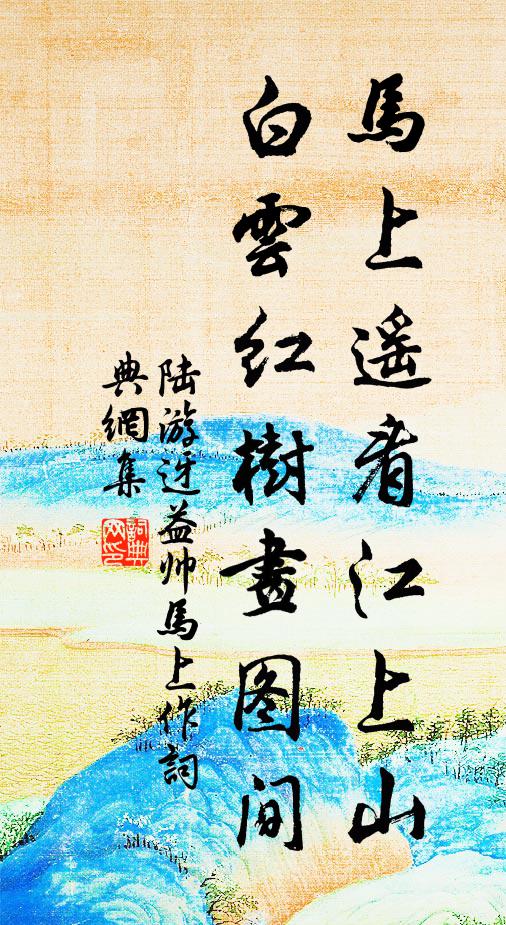 馬上遥看江上山
白雲紅樹畫图間
陆游迓益帅馬上作詞
典網集
詞典
网印